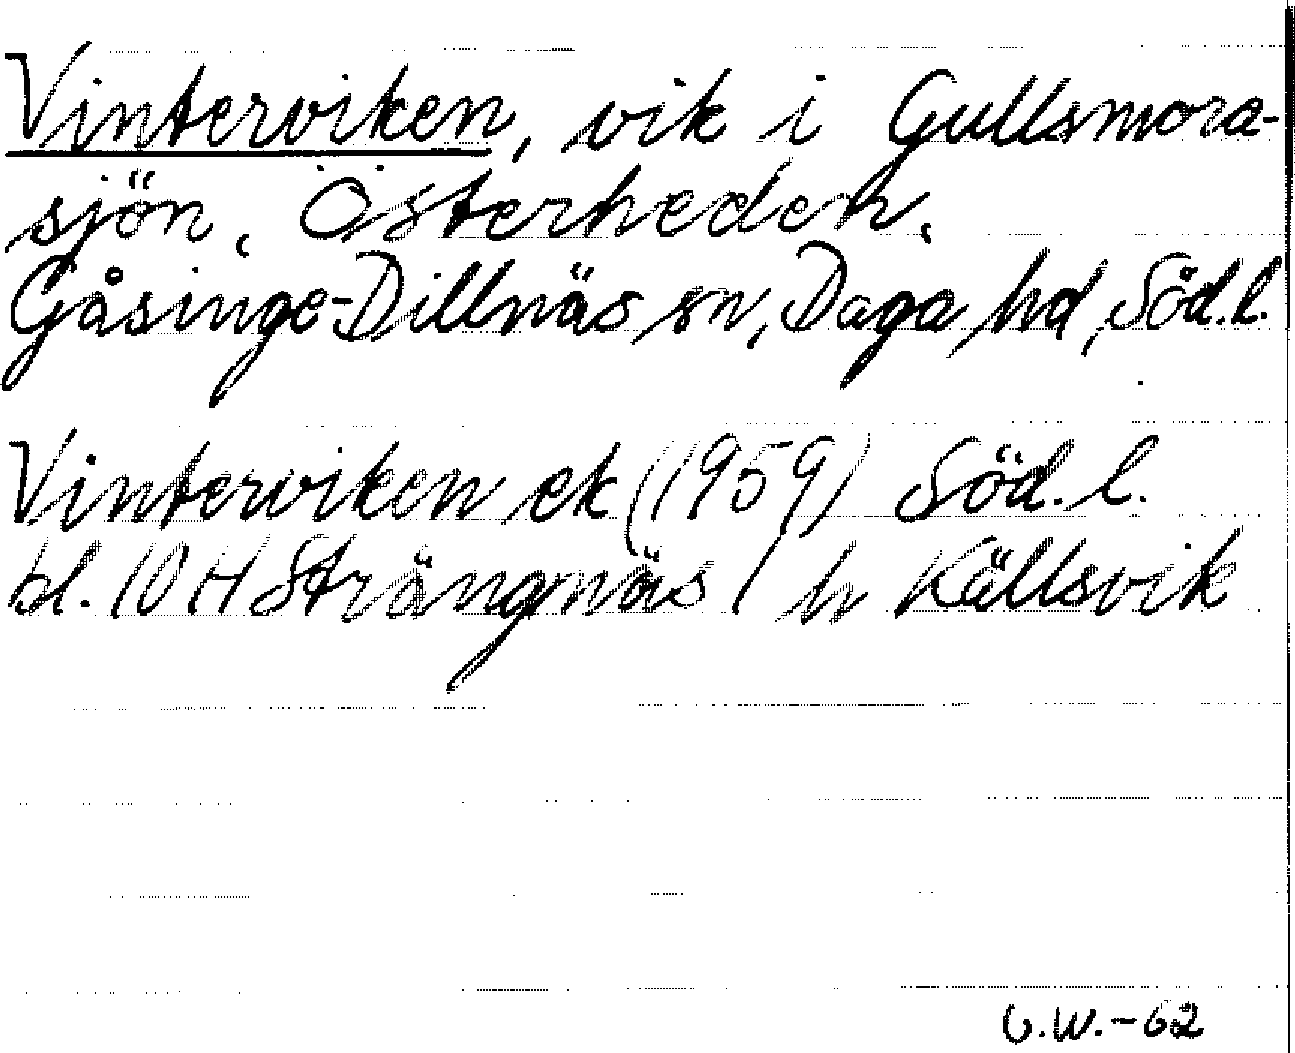 Vinterviken, vik i Gullsmora-
sjön, Österheden.
Gåsinge-Dillnäs sn, Daga hd, Söd.l.
Vinterviken ek (1959) Söd. l.
bl. 10 H Strängnäs / h Källsvik
G.W.-62